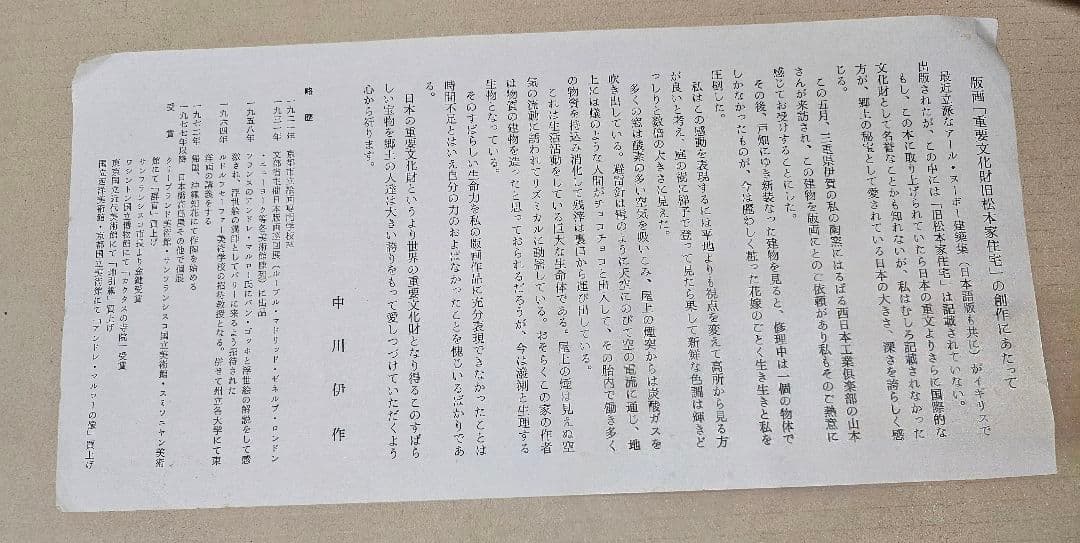 版画「重要文化財旧松本家住宅」の創作にあたって
最近立派なアール・ヌーボー建築集（日本語版も共に）がイギリスで
出版されたが、この中には「旧松本家住宅」は記載されていない。
もし、この本に取り上げられていたら日本の重文よりさらに国際的な
文化財として名誉なことかも知れないが、私はむしろ記載されなかった
方が、郷土の秘宝として愛されている日本の大きさ、深さを誇らしく感
じる。
この五月、三重県伊賀の私の陶窯にはるばる西日本工業倶楽部の山本
さんが来訪され、この建物を版画にとのご依頼があり私もそのご熱意に
感じてお受けすることにした。
その後、戸畑にゆき新装なった建物を見ると、修理中は一個の物体で
しかなかったものが、今は麗わしく粧った花嫁のごとく生き生きと私を
圧倒した。
私はこの感動を表現するには平地よりも視点を変えて高所から見る方
が良いと考え、庭の隅に梯子で登って見たら果して新鮮な色調は輝きど
っしりと数倍の大きさに見えた。
多くの窓は酸素の多い空気を吸いこみ、屋上の煙突からは炭酸ガスを
吹き出している。避雷針は触角のように天空にのびて空の電流に通じ、地
上には蟻のような人間がチョコチョコと出入して、その胎内で働き多く
の物資を持込み消化して残滓は裏口から運び出している。
これは生活活動をしている巨大な生命体である。屋上の煙は見えぬ空
気の流動に誘われてリズミカルに動揺している。おそらくこの家の作者
は物質の建物を造ったと思っておられるだろうが、今は溌剌と生理する
生物となっている。
そのすばらしい生命力を私の版画作品に充分表現できなかったことは
時間不足とはいえ自分の力のおよばなかったことを愧じいるばかりであ
る。
日本の重要文化財というより世界の重要文化財となり得るこのすばら
しい宝物を郷土の人達は大きい誇りをもって愛しつづけていただくよう
心から祈ります。
中川伊作
略歴
一九二一年　京都市立絵画専門学校卒
文部省主催日本版画巡回展（ルーブル・マドリッド・ゼネルブ・ロンドン
・ニューヨーク等各美術館陳列）に出品
一九五八年　フランスのアンドレ・マルロー氏にバン・ゴッホと浮世絵の解説をして感
激され、浮世絵の講師としてパリーに来るよう招待された
一九六四年
美術学校の招待教授となる、併せて州立各大学にて東
洋画の講義をする
一九七二年　帰国、沖縄知花にて作陶を始める
一九七七年以降　日本橋高島屋その他で個展
受賞　サンフランシスコ市長より金鍵受賞
クリーブランド美術館・サンフランシスコ国立美術館・スミソニヤン美術
館にて「群青」買上げ
ワシントン国立博物館にて「カクタスの寺院」受賞
東京国立近代美術館にて
国立西洋美術館・京都国立美術館にて「アンドレ・マルローの像」買上げ